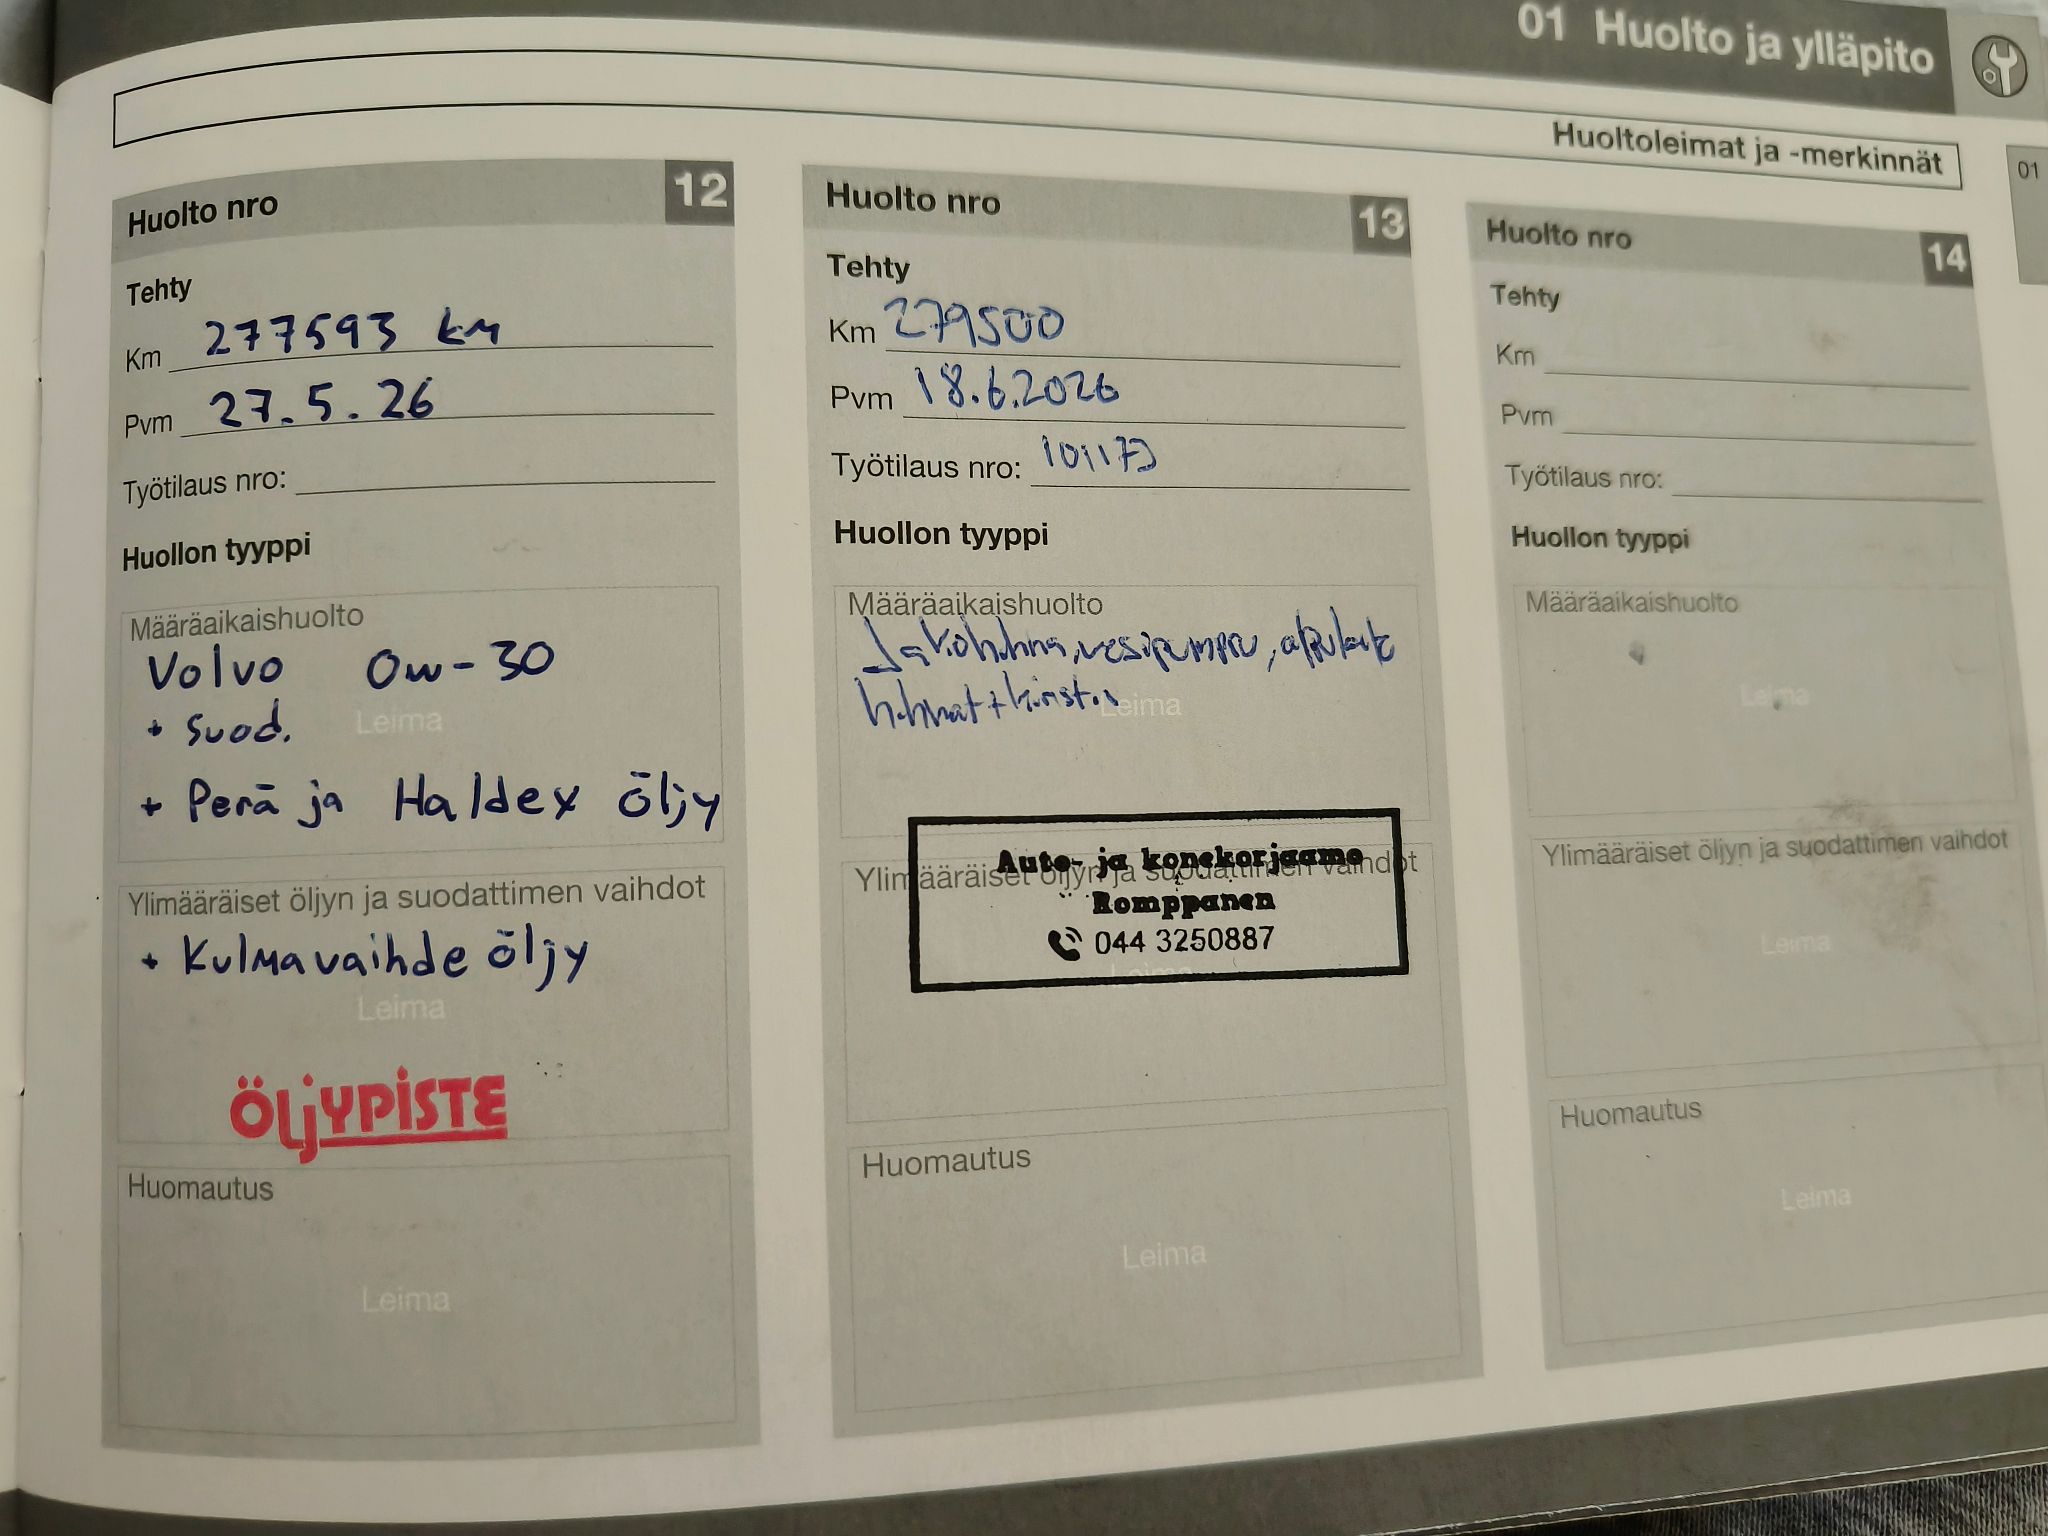 01 Huolto ja ylläpito
Huoltoleimat ja -merkinnät
01
Huolto nro 12
Tehty
Km 277593 km
Pvm 27.5.26
Työtilaus nro:
Huollon tyyppi
Määräaikaishuolto
Volvo 0w-30
Leima
+ suod.
+ Perä ja Haldex öljy
Ylimääräiset öljyn ja suodattimen vaihdot
+ Kulmavaihde öljy
Leima
ÖLjYPiSTE
Huomautus
Leima
Huolto nro 13
Tehty
Km 279500
Pvm 18.6.2026
Työtilaus nro: 101173
Huollon tyyppi
Määräaikaishuolto
Jakohihna, vesipumppu, apulaite
hihnat + kiristin
Leima
Ylimääräiset öljyn ja suodattimen vaihdot
Auto- ja konekorjaamo
Romppanen
044 3250887
Leima
Huomautus
Leima
Huolto nro 14
Tehty
Km
Pvm
Työtilaus nro:
Huollon tyyppi
Määräaikaishuolto
Leima
Ylimääräiset öljyn ja suodattimen vaihdot
Leima
Huomautus
Leima